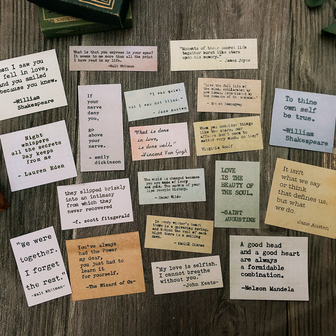 When I saw you
I fell in love,
and you smiled
because you knew.
-William
Shakespeare
What is that you express in your eyes?
It seems to me more than all the print
I have read in my life.
-Walt Whitman
Moments of their secret life
together burst like stars
upon his memory.
- James Joyce
If
your
nerve
deny
you,
go
above
your
nerve.
- emily
dickinson
I was quiet,
but I was not blind.
- Jane Austen
To thine
own self
be true.
-William
Shakespeare
Night
whispers
the secrets
Day keeps
from me
- Lauren Eden
"What is done
in love,
is done well."
-Vincent Van Gogh
Virginia Woolf
they slipped briskly
into an
intimacy
from which they
never recovered
-f. scott fitzgerald
- Oscar Wilde
LOVE
IS THE
BEAUTY OF
THE SOUL.
-SAINT
AUGUSTINE
It isn't
what we say
or think
that defines us,
but what
we do.
Jane Austen
"We were
together.
I forget
the rest."
-Walt Whitman-
You've always
had the Power
my dear,
you just had to
learn it
for yourself.
-The Wizard of Oz-
"My love is selfish.
I cannot breathe
without you."
-John Keats-
A good head
and a good heart
are always
a formidable
combination.
-Nelson Mandela